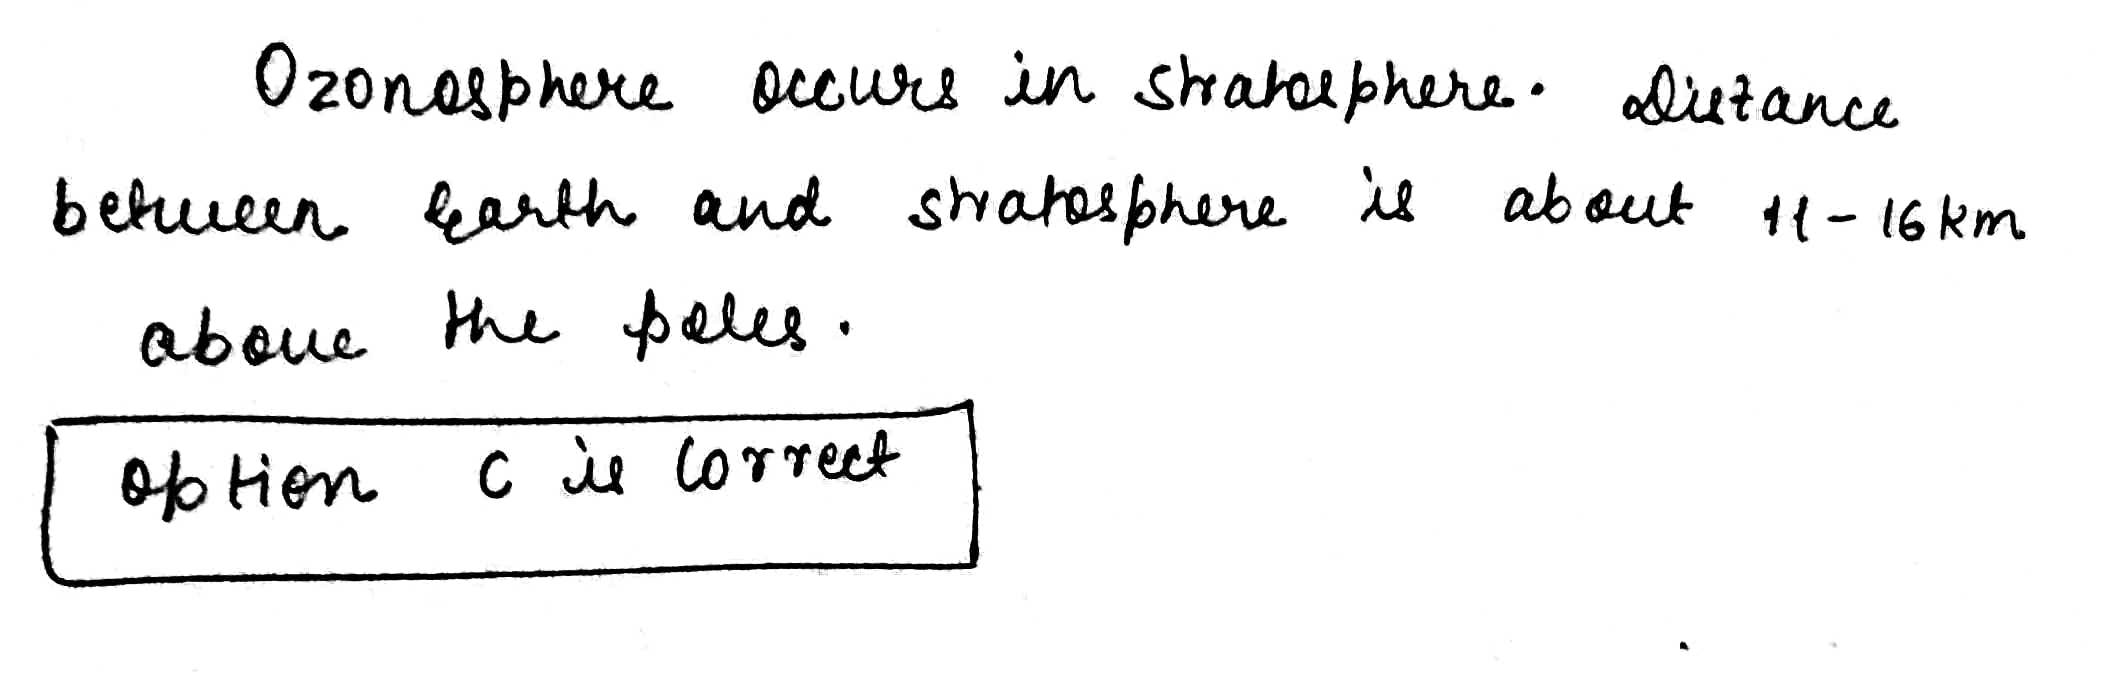 Ozonosphere occurs in stratosphere. Distance
between Earth and stratosphere is about 11-16 km
above the poles.
Option C is correct